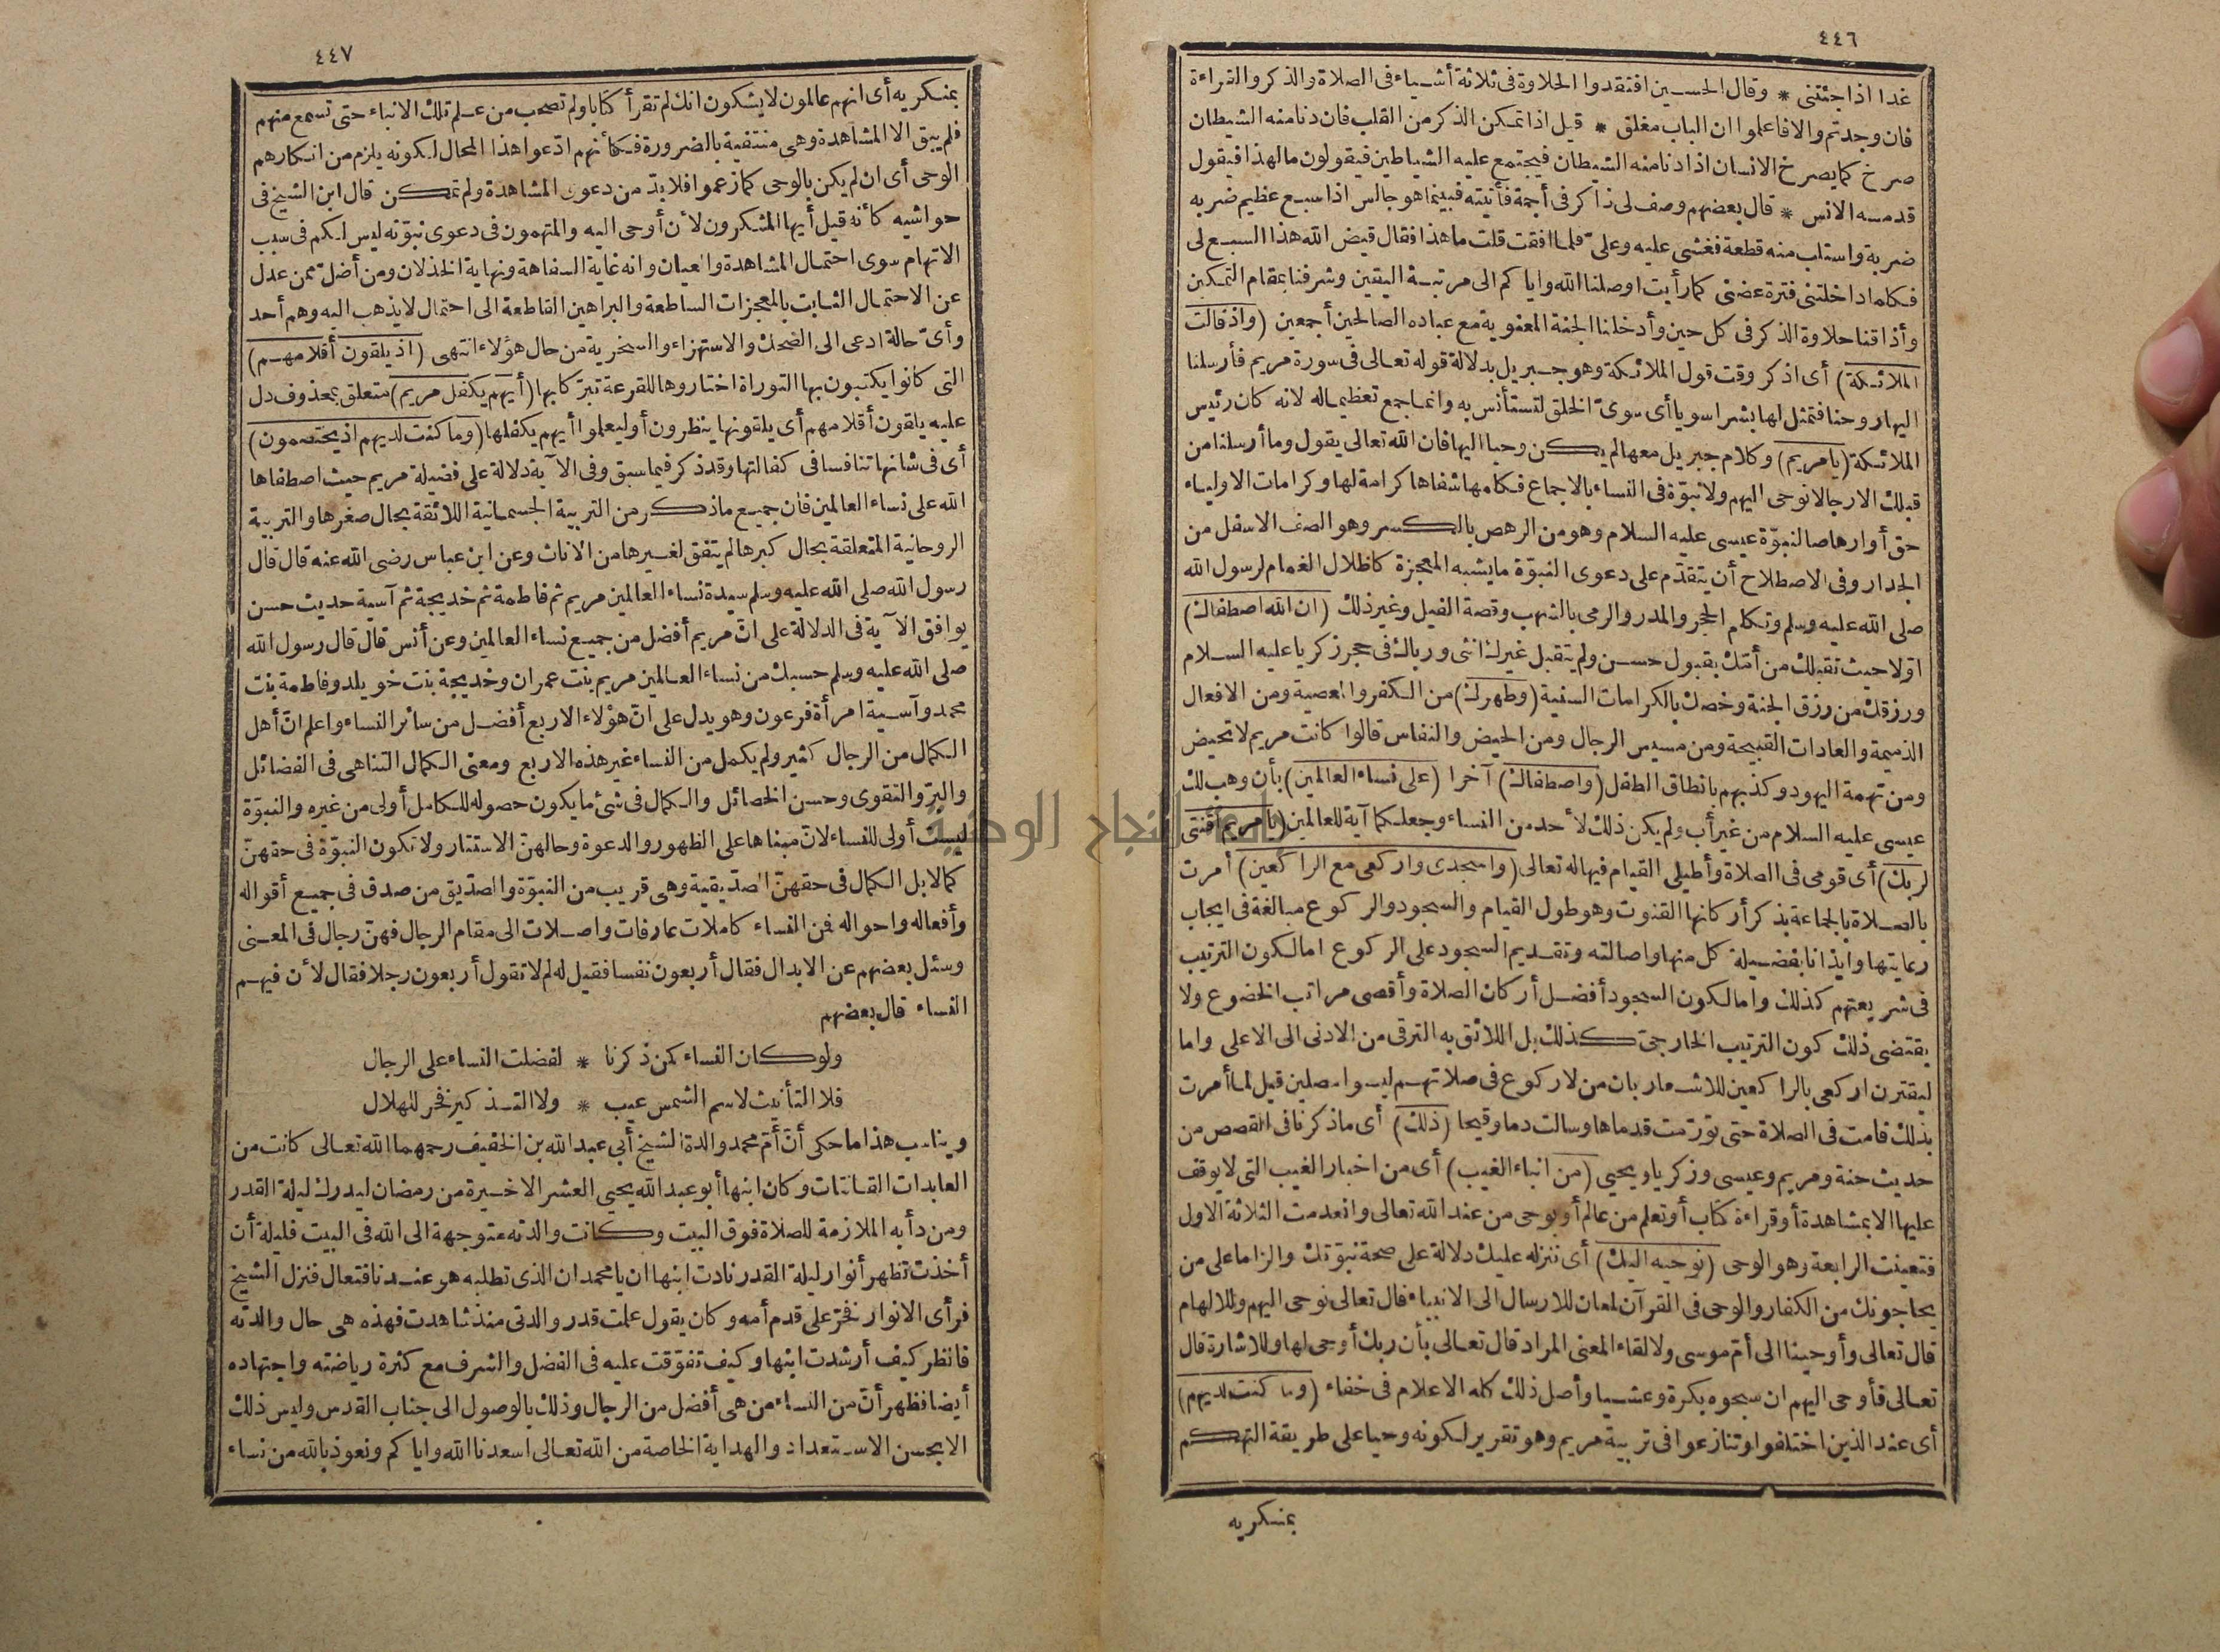 ٤٤٦
غدا اذا جئتنى * وقال الحسين افتقدوا الحلاوة فى ثلاثة أشياء فى الصلاة والذكر والقراءة
فان وجدتم والا فاعلموا ان الباب مغلق * قيل اذا تمكن الذكر من القلب فان دنا منه الشيطان
صرخ كما يصرخ الانسان اذا دنا منه الشيطان فيجتمع عليه الشياطين فيقولون ما لهذا فيقول
قد مسه الانس * قال بعضهم وصف لى ذاكر فى أجمة فأتيته فبينما هو جالس اذا سبع عظيم ضربه
ضربة واستلب منه قطعة فغشى عليه وعلىّ فلما افقت قلت ما هذا فقال قيض الله هذا السبع لى
فكلما داخلتنى فترة عضنى كما رأيت اوصلنا الله واياكم الى مرتبة اليقين وشرفنا بمقام التمكين
وأذاقنا حلاوة الذكر فى كل حين وأدخلنا الجنة المعنوية مع عباده الصالحين أجمعين (واذ قالت
الملائكة) أى اذكر وقت قول الملائكة وهو جبريل بدلالة قوله تعالى فى سورة مريم فأرسلنا
اليها روحنا فتمثل لها بشرا سويا أى سوىّ الخلق لتستأنس به وانما جمع تعظيما له لانه كان رئيس
الملائكة (يا مريم) وكلام جبريل معها لم يكن وحيا اليها فان الله تعالى يقول وما أرسلنا من
قبلك الا رجالا نوحى اليهم ولا نبوّة فى النساء بالاجماع فكلمها شفاها كرامة لها وكرامات الاولياء
حق أو ارهاصا لنبوّة عيسى عليه السلام وهو من الرهص بالكسر وهو الصف الاسفل من
الجدار وفى الاصطلاح أن يتقدّم على دعوى النبوّة ما يشبه المعجزة كاظلال الغمام لرسول الله
صلى الله عليه وسلم وتكلم الحجر والمدر والرمى بالشهب وقصة الفيل وغير ذلك (ان الله اصطفاك)
اوّلا حيث تقبلك من أمّك بقبول حسن ولم يتقبل غيرك انثى ورباك فى حجر زكريا عليه السلام
ورزقك من رزق الجنة وخصك بالكرامات السنية (وطهرك) من الكفر والمعصية ومن الافعال
الذميمة والعادات القبيحة ومن مسيس الرجال ومن الحيض والنفاس قالوا كانت مريم لا تحيض
ومن تهمة اليهود وكذبهم بانطاق الطفل (واصطفاك) آخرا (على نساء العالمين) بأن وهب لك
عيسى عليه السلام من غير أب ولم يكن ذلك لأحد من النساء وجعلكما آية للعالمين (يا مريم اقنتى
لربك) أى قومى فى الصلاة وأطيلى القيام فيها له تعالى (واسجدى واركعى مع الراكعين) أمرت
بالصلاة بالجماعة بذكر أركانها القنوت وهو طول القيام والسجود والركوع مبالغة فى ايجاب
رعايتها وايذانا بفضيلة كل منها واصالته وتقديم السجود على الركوع اما لكون الترتيب
فى شريعتهم كذلك واما لكون السجود أفضل أركان الصلاة وأقصى مراتب الخضوع ولا
يقتضى ذلك كون الترتيب الخارجىّ كذلك بل اللائق به الترقى من الادنى الى الاعلى واما
ليقترن اركعى بالراكعين للاشعار بان من لا ركوع فى صلاتهم ليسوا مصلين قيل لما أمرت
بذلك قامت فى الصلاة حتى تورّمت قدماها وسالت دما وقيحا (ذلك) أى ما ذكرنا فى القصص من
حديث حنة ومريم وعيسى وزكريا ويحيى (من انباء الغيب) أى من اخبار الغيب التى لا يوقف
عليها الا بمشاهدة أو قراءة كتاب أو تعلم من عالم أو بوحى من عند الله تعالى وانعدمت الثلاثة الاول
فتعينت الرابعة وهو الوحى (نوحيه اليك) أى ننزله عليك دلالة على صحة نبوّتك والزاما على من
يحاجونك من الكفار والوحى فى القرآن لمعان للارسال الى الانبياء قال تعالى نوحى اليهم وللالهام
قال تعالى وأوحينا الى أمّ موسى ولالقاء المعنى المراد قال تعالى بأن ربك أوحى لها وللاشارة قال
تعالى فأوحى اليهم ان سبحوه بكرة وعشيا وأصل ذلك كله الاعلام فى خفاء (وما كنت لديهم)
أى عند الذين اختلفوا وتنازعوا فى تربية مريم وهو تقرير لكونه وحيا على طريقة التهكم
بمنكريه
٤٤٧
بمنكريه أى انهم عالمون لا يشكون انك لم تقرأ كتابا ولم تصحب من علم تلك الانباء حتى تسمع منهم
فلم يبق الا المشاهدة وهى منتفية بالضرورة فكأنهم ادّعوا هذا المحال لكونه يلزم من انكارهم
الوحى أى ان لم يكن بالوحى كما زعموا فلا بدّ من دعوى المشاهدة ولم تمكن قال ابن الشيخ فى
حواشيه كأنه قيل أيها المنكرون لأن أوحى اليه والمتهمون فى دعوى نبوّته ليس لكم فى سبب
الاتهام سوى احتمال المشاهدة والعيان وانه غاية السفاهة ونهاية الخذلان ومن أضلّ ممن عدل
عن الاحتمال الثابت بالمعجزات الساطعة والبراهين القاطعة الى احتمال لا يذهب اليه وهم أحد
وأىّ حالة ادعى الى الضحك والاستهزاء والسخرية من حال هؤلاء انتهى (اذ يلقون أقلامهم)
التى كانوا يكتبون بها التوراة اختاروها للقرعة تبرّكا بها (أيهم يكفل مريم) متعلق بمحذوف دل
عليه يلقون أقلامهم أى يلقونها ينظرون أو ليعلموا أيهم يكفلها (وما كنت لديهم اذ يختصمون)
أى فى شانها تنافسا فى كفالتها وقد ذكر فيما سبق وفى الآية دلالة على فضيلة مريم حيث اصطفاها
الله على نساء العالمين فان جميع ما ذكر من التربية الجسمانية اللائقة بحال صغرها والتربية
الروحانية المتعلقة بحال كبرها لم يتفق لغيرها من الاناث وعن ابن عباس رضى الله عنه قال قال
رسول الله صلى الله عليه وسلم سيدة نساء العالمين مريم ثم فاطمة ثم خديجة ثم آسية حديث حسن
يوافق الآية فى الدلالة على انّ مريم أفضل من جميع نساء العالمين وعن أنس قال قال رسول الله
صلى الله عليه وسلم حسبك من نساء العالمين مريم بنت عمران وخديجة بنت خويلد وفاطمة بنت
محمد وآسية امرأة فرعون وهو يدل على انّ هؤلاء الاربع أفضل من سائر النساء واعلم انّ أهل
الكمال من الرجال كثير ولم يكمل من النساء غير هذه الاربع ومعنى الكمال التناهى فى الفضائل
والبرّ والتقوى وحسن الخصائل والكمال فى شئ ما يكون حصوله للكامل أولى من غيره والنبوّة
ليست أولى للنساء لانّ مبناها على الظهور والدعوة وحالهنّ الاستتار ولا تكون النبوّة فى حقهنّ
كمالا بل الكمال فى حقهنّ الصدّيقية وهى قريب من النبوّة والصدّيق من صدق فى جميع أقواله
وأفعاله واحواله فمن النساء كاملات عارفات واصلات الى مقام الرجال فهنّ رجال فى المعنى
وسئل بعضهم عن الابدال فقال أربعون نفسا فقيل له لم لا تقول أربعون رجلا فقال لأن فيهم
النساء قال بعضهم
ولو كان النساء كمن ذكرنا * لفضلت النساء على الرجال
فلا التأنيث لاسم الشمس عيب * ولا التذكير فخر للهلال
ويناسب هذا ما حكى أنّ أمّ محمد والدة الشيخ أبى عبد الله بن الخفيف رحمهما الله تعالى كانت من
العابدات القانتات وكان ابنها أبو عبد الله يحيى العشر الاخيرة من رمضان ليدرك ليلة القدر
ومن دأبه الملازمة للصلاة فوق البيت وكانت والدته متوجهة الى الله فى البيت فليلة أن
أخذت تظهر أنوار ليلة القدر نادت ابنها ان يا محمد ان الذى تطلبه هو عندنا فتعال فنزل الشيخ
فرأى الانوار فخرّ على قدم أمه وكان يقول علمت قدر والدتى منذ شاهدت فهذه هى حال والدته
فانظر كيف أرشدت ابنها وكيف تفوّقت عليه فى الفضل والشرف مع كثرة رياضته واجتهاده
أيضا فظهر أنّ من النساء من هى أفضل من الرجال وذلك بالوصول الى جناب القدس وليس ذلك
الا بحسن الاستعداد والهداية الخاصة من الله تعالى اسعدنا الله واياكم ونعوذ بالله من نساء
النجاح الوطنية